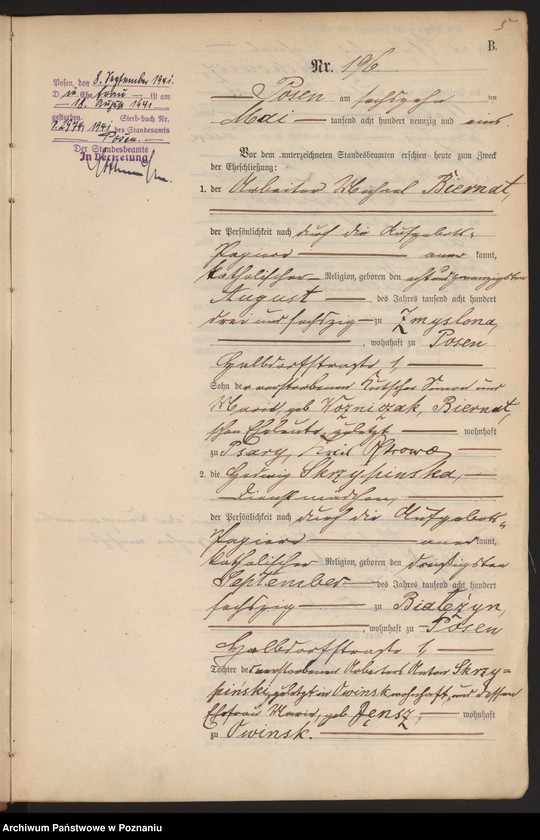 5
B.
Nr. 196
Posen, den 8. September 1941.
D ie Ehefrau ist am
18. August 1941
gestorben. Sterb-buch Nr.
1941 des Standesamts
Posen.
Der Standesbeamte
In Vertretung
Posen am sechszehn ten
Mai tausend acht hundert neunzig und eins
Vor dem unterzeichneten Standesbeamten erschien heute zum Zweck
der Eheschließung:
1. der Arbeiter Michael Biernat,
der Persönlichkeit nach durch die Aufgebots-
Papiere aner kannt,
katholischer Religion, geboren den achtundzwanzigsten
August des Jahres tausend acht hundert
drei und sechszig zu Zmyslona,
, wohnhaft zu Posen
Halbdorfstraße 1,
Sohn der verstorbenen Kutscher Simon und
Marie, geb. Wozniczak, Biernat,
schen Eheleute, zuletzt wohnhaft
zu Psary, Kreis Ostrowo
2. die Hedwig Skrzypinska,
Dienstmädchen,
der Persönlichkeit nach durch die Aufgebots-
Papiere aner kannt,
katholischer Religion, geboren den dreißigsten
September des Jahres tausend acht hundert
sechszig zu Bialczyn,
, wohnhaft zu Posen
Halbdorfstraße 1,
Tochter des verstorbenen Arbeiters Anton Skrzy-
pinski, zuletzt in Owinsk wohnhaft, und dessen
Ehefrau Marie, geb. Jensz, wohnhaft
zu Owinsk.
Archiwum Państwowe w Poznaniu